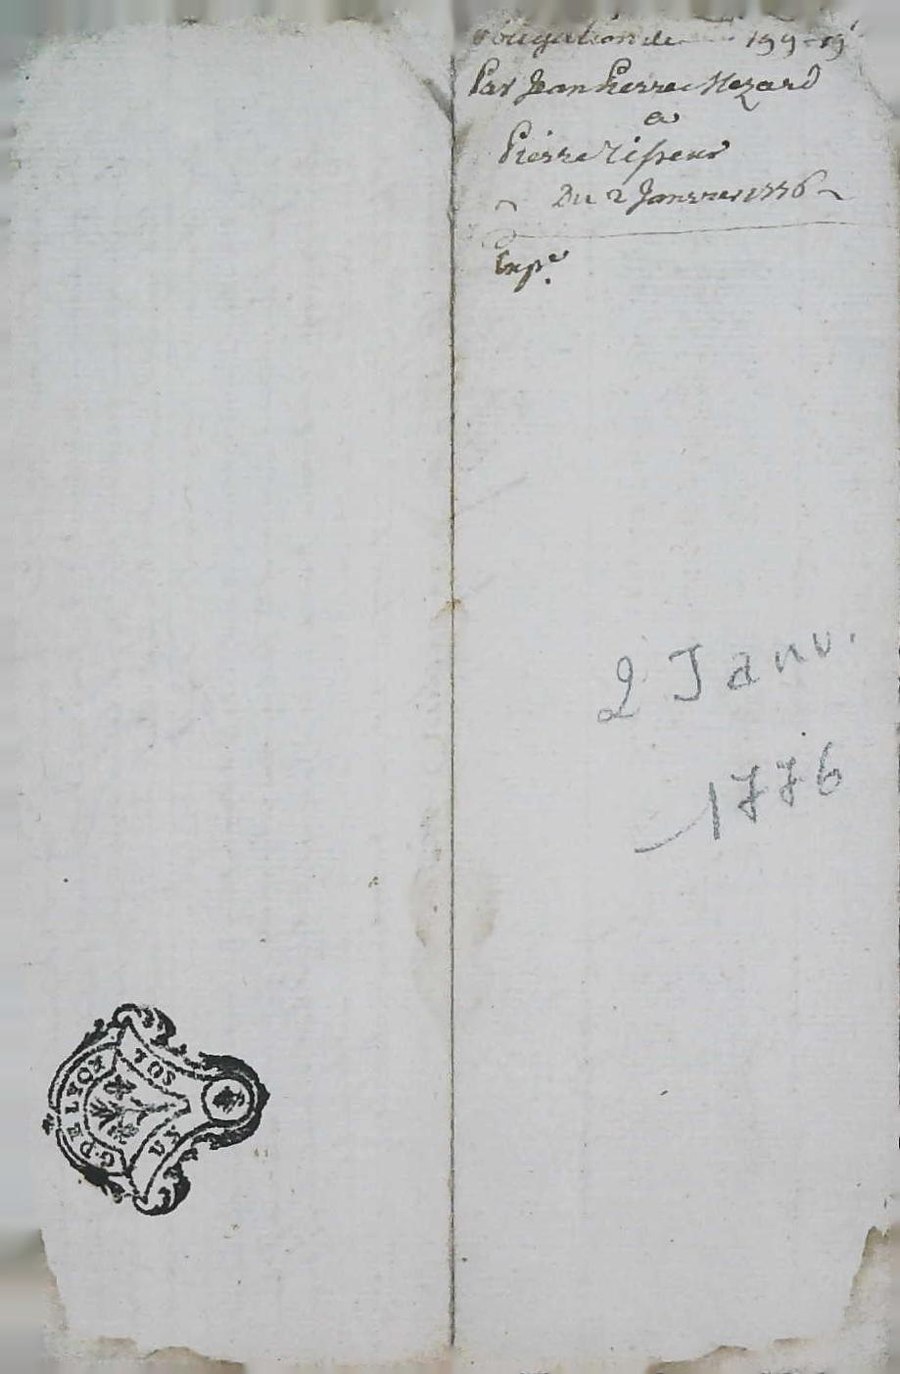 obligation de 199 - 19ˢ
Par Jean Pierre Mezard
a
Pierre Tisseur
Du 2 Janvier 1776
Exp.ᵉ
2 Janv.
1776
G. DE LYON
UN SOL